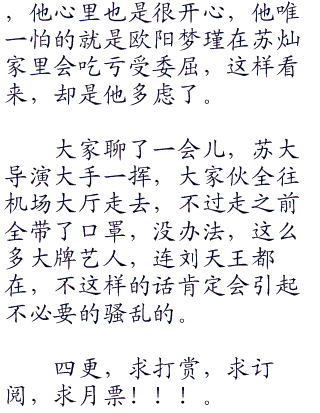 ，他心里也是很开心，他唯
一怕的就是欧阳梦瑾在苏灿
家里会吃亏受委屈，这样看
来，却是他多虑了。
大家聊了一会儿，苏大
导演大手一挥，大家伙全往
机场大厅走去，不过走之前
全带了口罩，没办法，这么
多大牌艺人，连刘天王都
在，不这样的话肯定会引起
不必要的骚乱的。
四更，求打赏，求订
阅，求月票！！！。